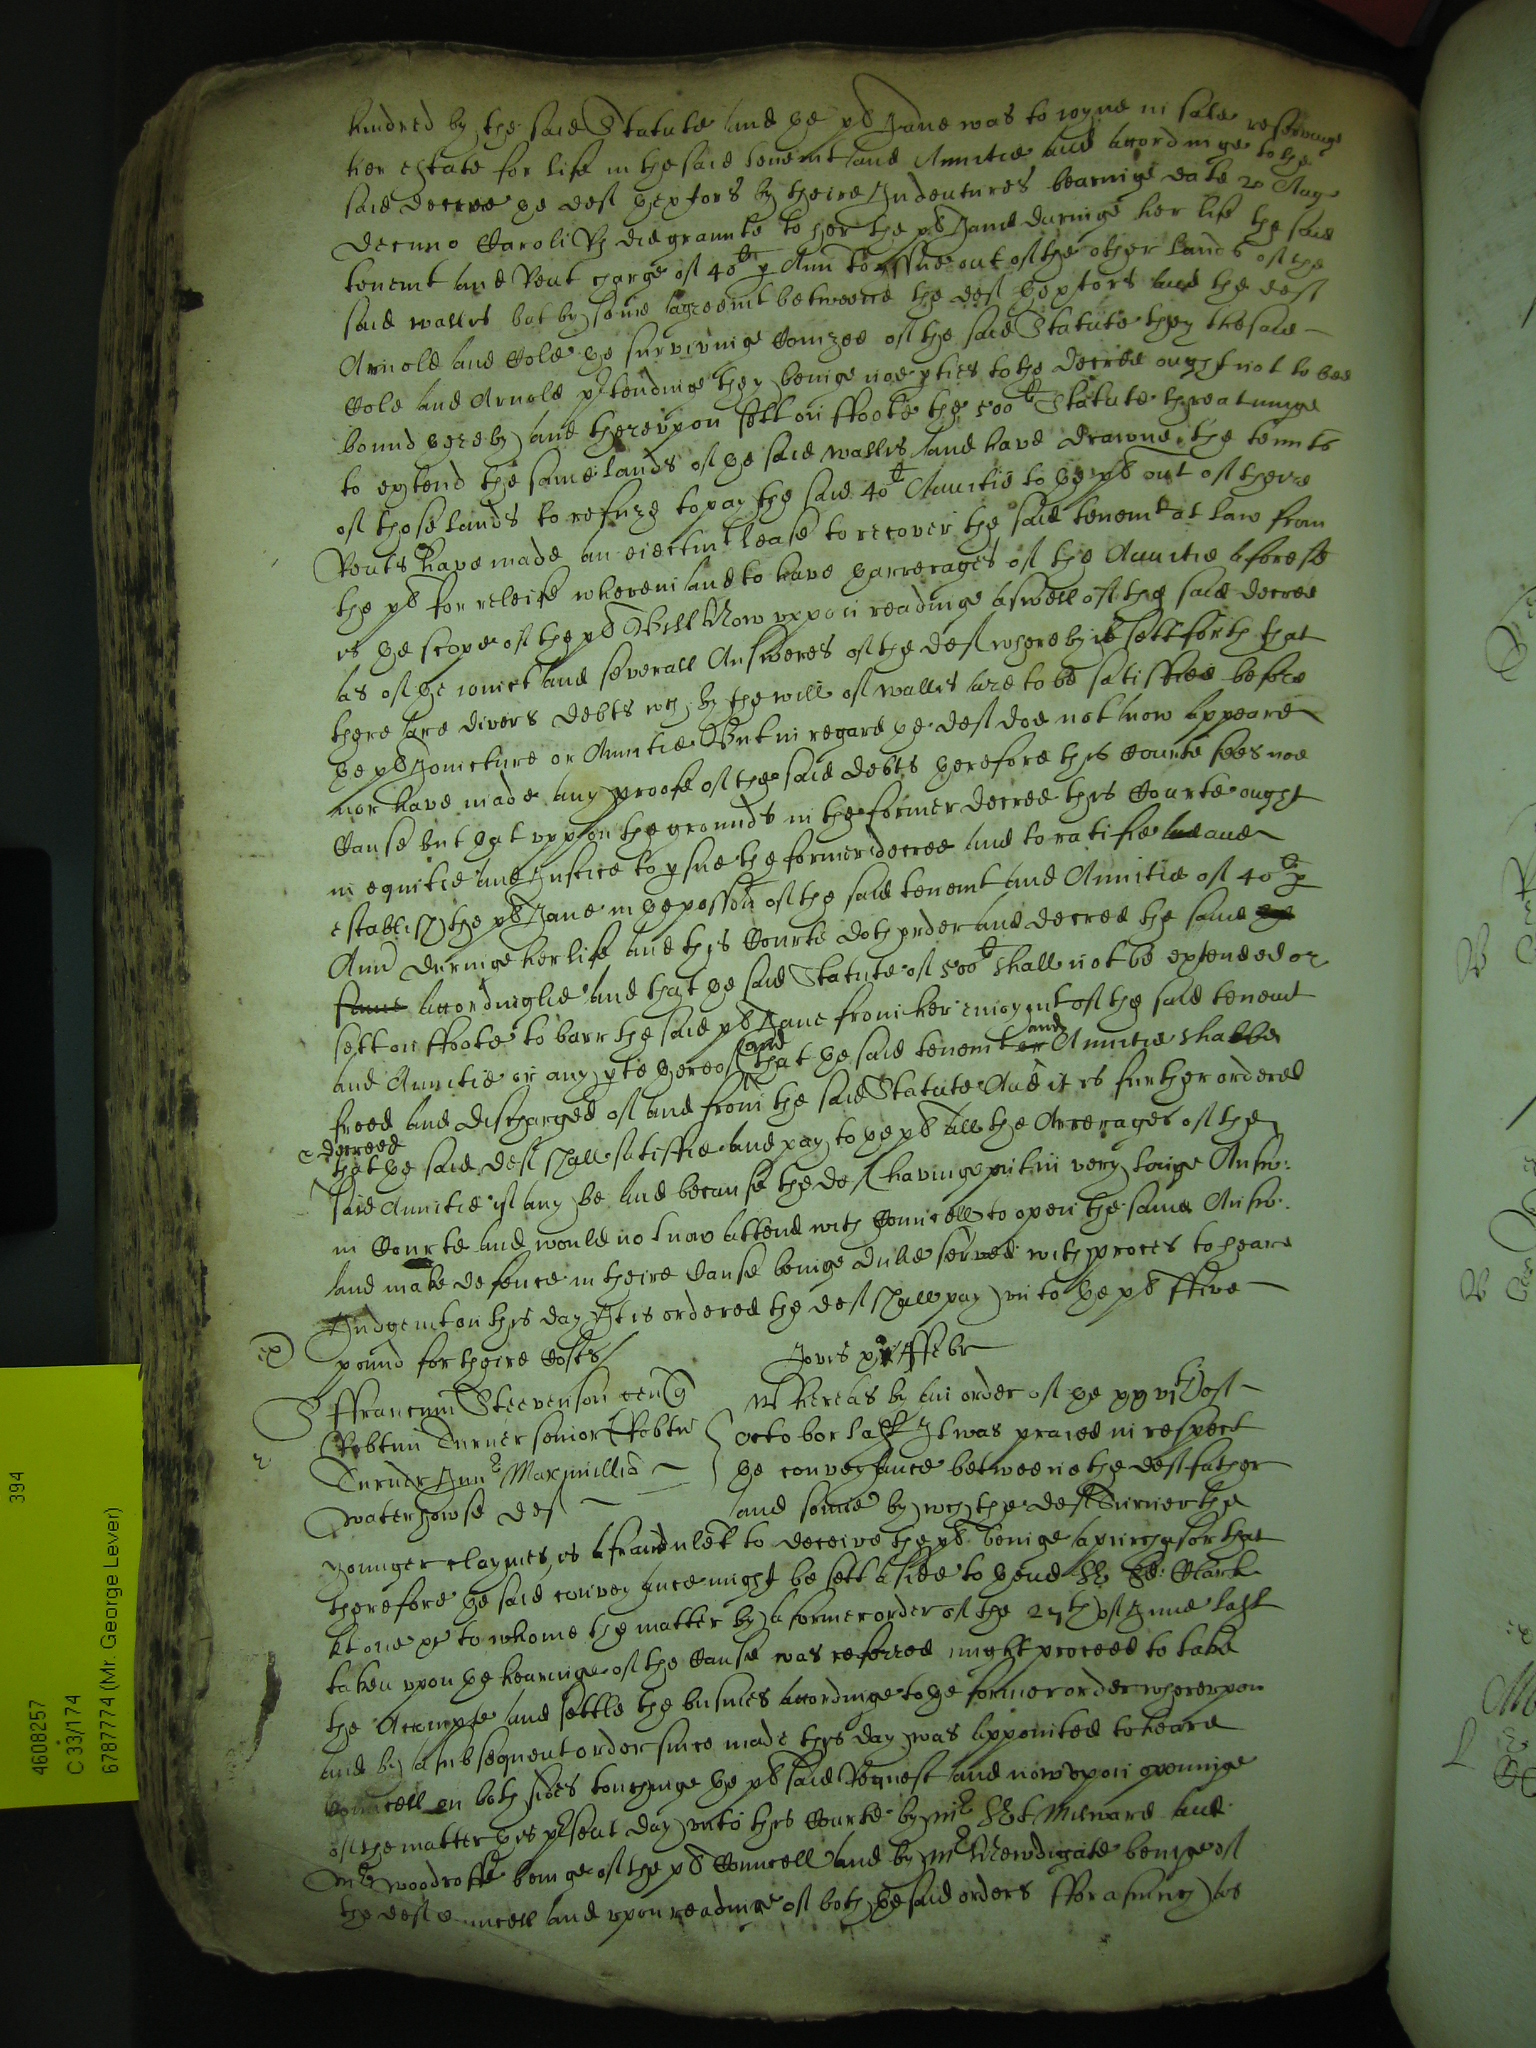 hindred by the said Statute and ye plt Jane was to ioyne in sale reservinge
her estate for life in the said tenemt and Annitie and accordinge to the
said decree ye deft Exectors by theire Indentures bearinge date 20 Aug
decimo Caroli Rs did graunte to her the plt Jane duringe her life the said
tenemt and Rent charge of 40li p Ann to yssue out of the other lands of the
said wallis but by some agreemt betweene the deft Exectors and the deft
Arnold and Cole ye survivinge Conizee of the said Statute they the said
Cole and Arnold prtendinge they beinge noe pties to the decree ought not to bee
bound hereby and therevpon sett on ffoote the 500li Statute threatninge
to extend the same lands of ye said wallis and have drawne the tennts
of those lands to refuze to pay the said 40li Annitie to ye plt out of theire
Rents have made an eiectmt lease to recover the said tenemt at law from
the plt for releife wherein and to have ye arrerages of the Annitie aforesd
is ye scope of the plt Bill Now vppon readinge aswell of the said decree
as of ye ioinct and severall Answeres of the deft whereby is sett forth that
there are divers debts wch by the will of wallis are to be satisffied before
ye plt Joincture or Annitie But in regard ye deft doe not now appeare
nor have made any proofe of the said debts herefore this Courte sees noe
Cause but yt vppon the grounds in the former decree this Courte ought
in equitie and Justice to psue the former decree and to ratifie and
establish the plt Jane in ye possion of the said tenemt and Annitie of 40li p
Ann duringe her life and this Courte doth order and decree the same
same accordinglie and that ye said Statute of 500li shall not be extended or
sett on ffoote to barr the said plt Jane from her enioymt of the said tenemt
and Annitie or any pte thereof and that ye said tenemt or and Annitie shalbe
freed and discharged of and from the said Statute And it is further ordered
& decreed
that ye said deft shall satisffie and pay to ye plt all the Arrerages of the
said Annitie if any be and because the deft havinge put in very longe Answ:
in Courte and would not now attend with Councell to open the same Answ:
and make defence in theire Cause beinge dulie served with proces to heare
Judgemt on this day It is ordered the deft shall pay vnto ye plt ffive
pound for theire Costs
Jovis ffebr
S ffrancum Steevenson quer
Robtum Turner senior Robtu
Turner Jun Maximillia
waterhowse deft
Whereas by an order of ye xxvith of
October last It was praied in respect
ye conveyance betweene the deft father
and sonne by wch the deft Turner the
younger claymes is afraudulet to deceive the plt beinge a purchasor that
therefore ye said conveyance might be sett aside to yend Sr Ed: Clark
kt one &c to whome the matter by a former order of the 27th of June last
taken vpon ye hearinge of the Cause was referred might proceed to take
the Accompte and settle the busines accordinge to ye former order wherevpon
and by a subsequent order since made this day was appointed to heare
Councell on both sides touchinge ye plt said Request and now vpon openinge
of the matter this prsent day vnto this Courte by Mr Srt Milward and
Mr woodroffe beinge of the plt Councell and by Mr Newdigate beinge of
the deft Councell and vpon readinge of both ye said orders fforasmuch as
4608257
C 33/174
6787774 (Mr. George Lever)
394